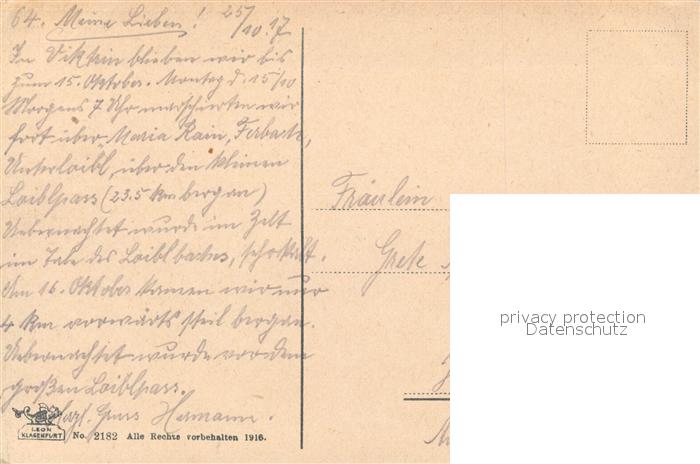 64. Meine Lieben! 25/10.17
In Viktrin blieben wir bis
zum 15. Oktober. Montag d. 15/10
Morgens 7 Uhr marschierten wir
fort über Maria Rain, Ferbach,
Unterloibl, über den kleinen
Loiblpass (23.5 km bergan)
Uebernachtet wurde im Zelt
im Tale des Loiblbaches, sehr kalt.
Am 16. Oktober kamen wir nur
4 km vorwärts steil bergan.
Uebernachtet wurde vor dem
großen Loiblpass.
Herzl. Gruss Hermann.
LEON
KLAGENFURT
No. 2182 Alle Rechte vorbehalten 1916.
Fräulein
Grete
privacy protection
Datenschutz